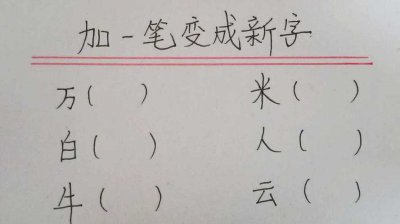 加一笔变成新字
万（ ） 米（ ）
白（ ） 人（ ）
牛（ ） 云（ ）